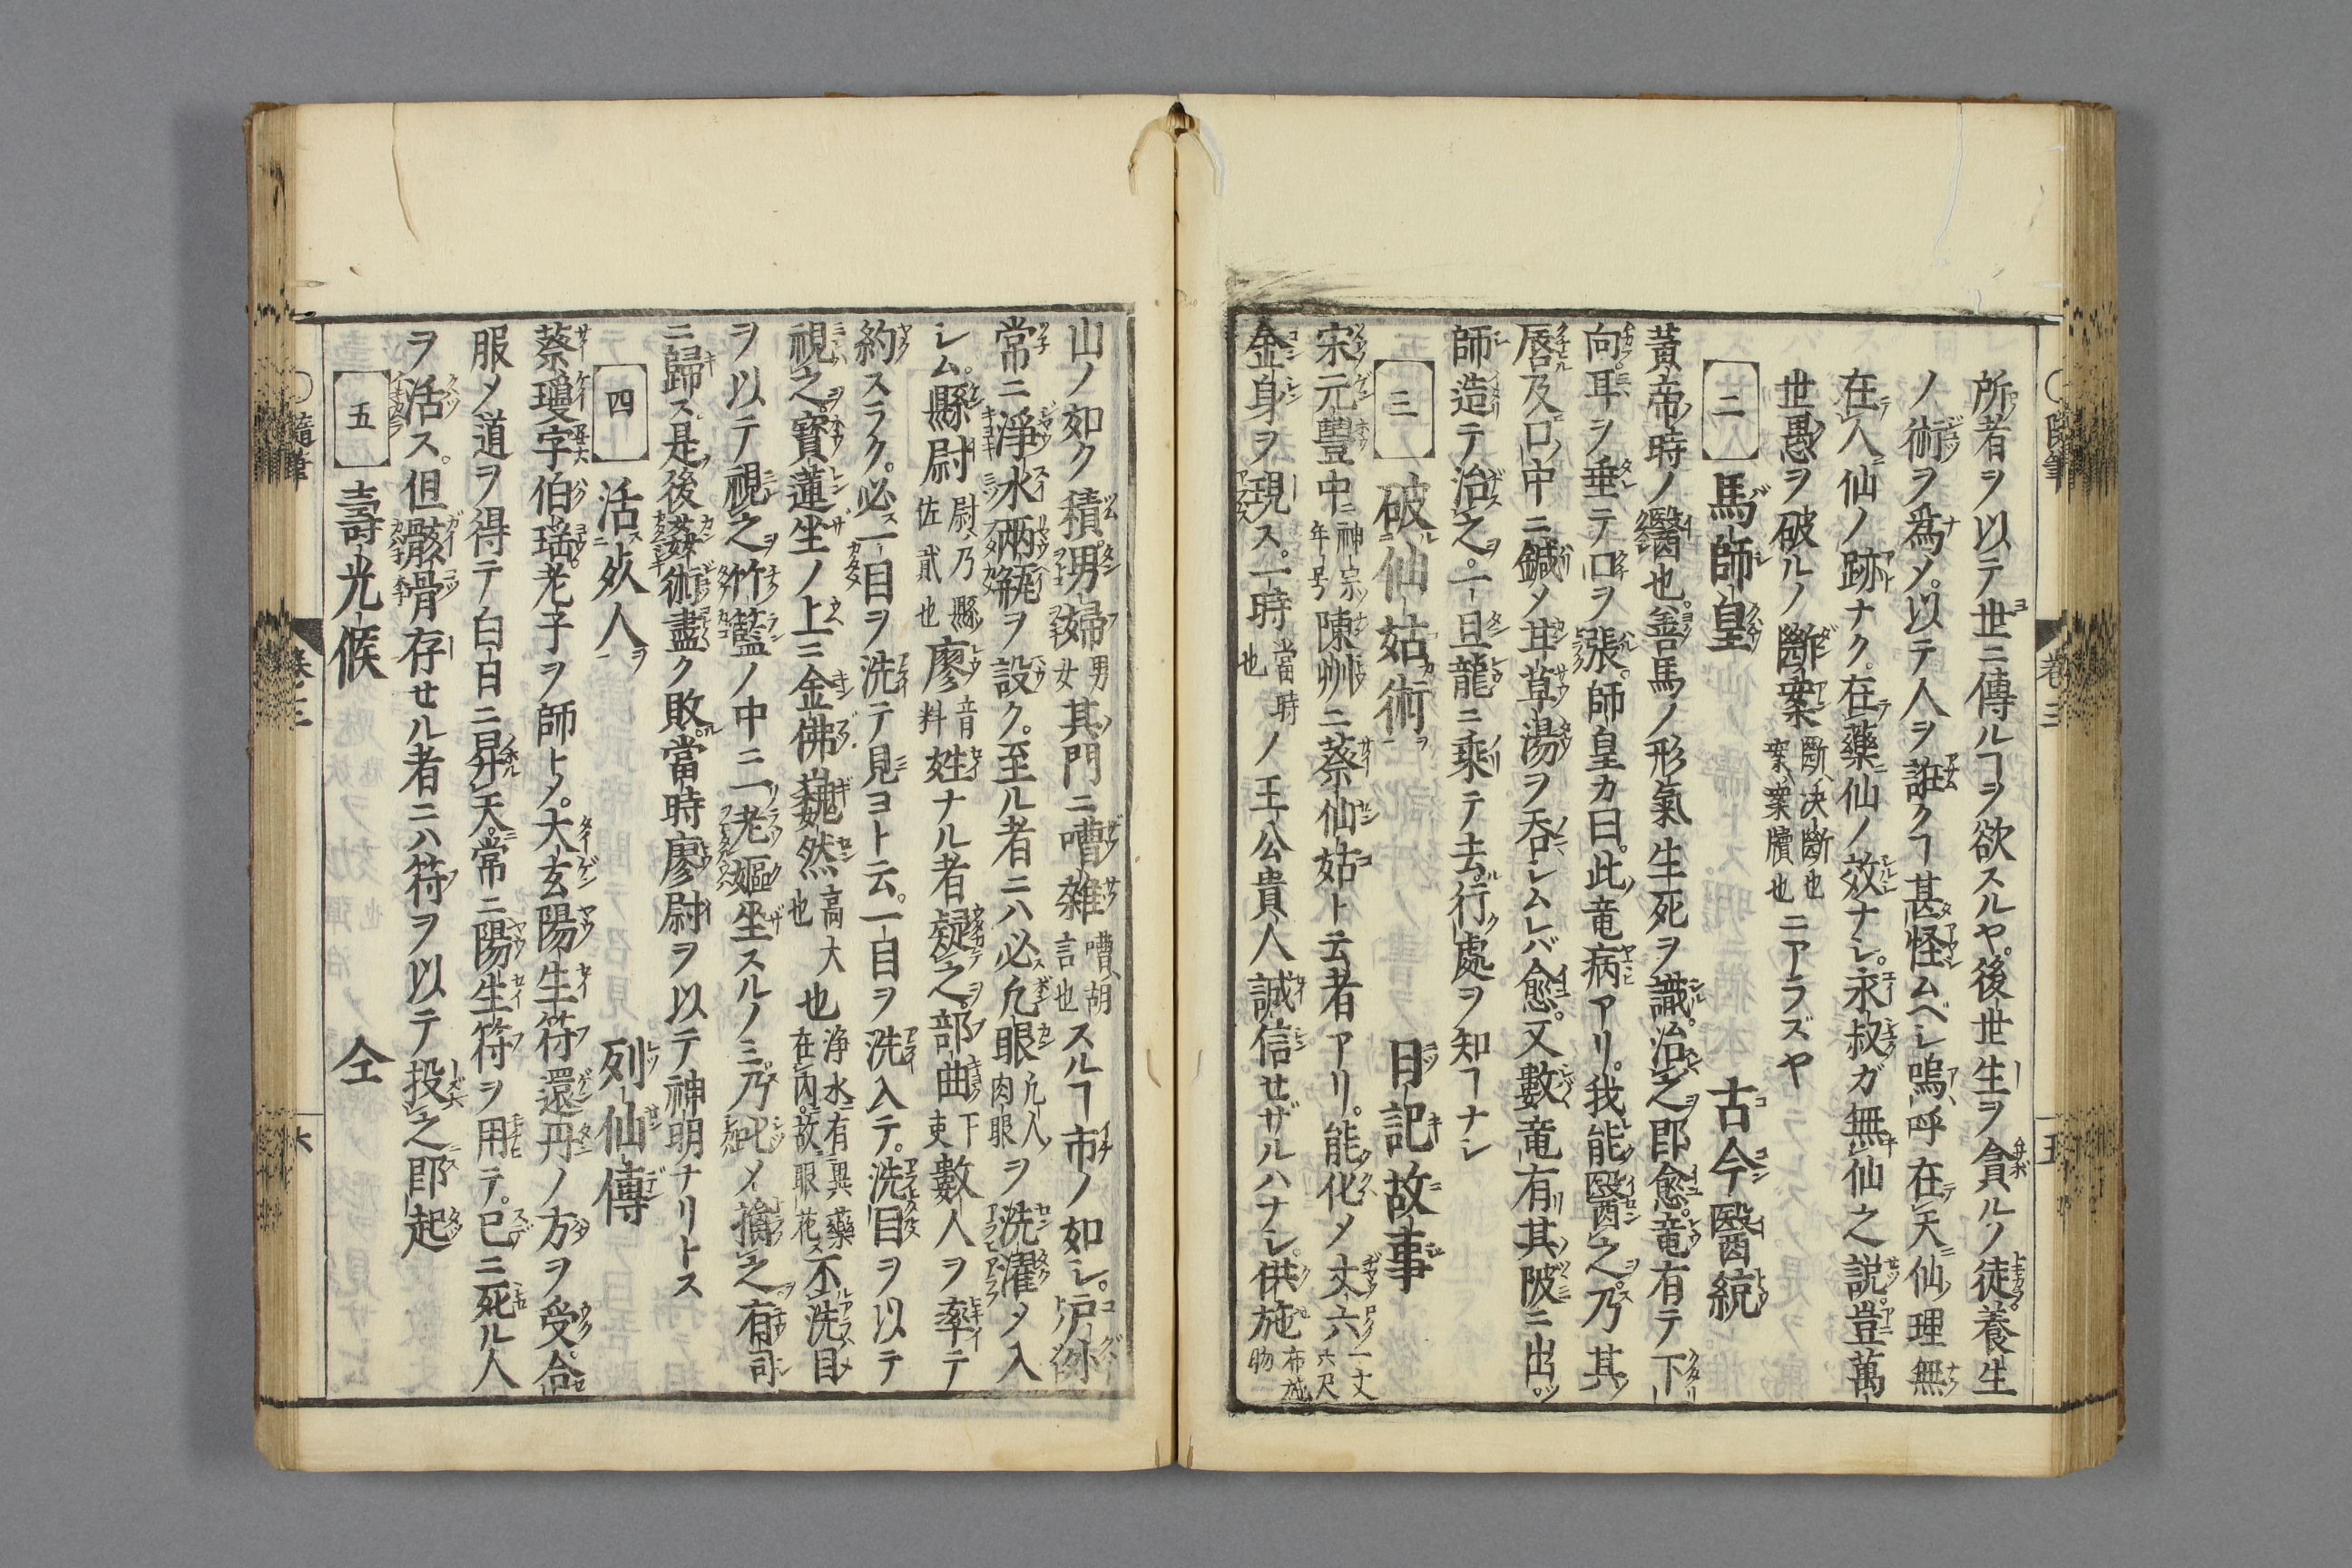 所者ヲ以テ世ニ傳ルヿヲ欲スルヤ。後世生ヲ貪ルノ徒。養生
ノ術ヲ爲メ。以テ人ヲ誑クヿ甚怪ムベレ嗚呼在天仙理無
在人仙ノ跡ナク。在藥仙ノ效ナレ。永叔ガ無仙之説。豈萬
世愚ヲ破ルノ斷案斷決斷也案案牘也ニアラズヤ
二 馬師皇 古今醫統
黃帝時ノ醫也。善馬ノ形氣生死ヲ識。治之即愈。竜有テ下
向。耳ヲ垂テ口ヲ張。師皇カ曰。此竜病アリ。我能醫之。乃其
唇及口中ニ鍼メ甘草湯ヲ呑レムレバ愈。又數竜有其陂ニ出。
師造テ治之。一旦龍ニ乘テ去。行處ヲ知ヿナレ
三 破仙姑術 日記故事
宋元豐中神宗年号陳州ニ蔡仙姑ト云者アリ。能化メ丈六一丈六尺
金身ヲ現ス。一時當時也ノ王公貴人誠信セザルハナレ。供施布施物
山ノ如ク積。男婦男女其門ニ嘈雜嘈胡言也スルヿ市ノ如レ。
常ニ淨水兩甁ヲ設ク。至ル者ニハ必凡眼凡人肉眼ヲ洗濯メ入
レム。縣尉尉乃縣佐貳也廖音料姓ナル者疑之。部曲下吏數人ヲ率テ
約スラク。必一目ヲ洗テ見ヨト云。一目ヲ洗入テ。洗目ヲ以テ
視之。寳蓮坐ノ上ニ金佛巍然高大也也浄水有異藥在内。故眼花不洗目
ヲ以テ視之。竹籃ノ中ニ一老嫗坐スルノミ。乃叱メ擒之。有司
ニ歸ス。是後姦術盡ク敗。當時廖尉ヲ以テ神明ナリトス
四 活死人 列仙傳
蔡瓊字伯瑶。老子ヲ師トメ。大玄陽生符還丹ノ方ヲ受。合
服メ道ヲ得テ白日ニ昇天。常ニ陽生符ヲ用テ。已ニ死ル人
ヲ活ス。但骸骨存セル者ニハ符ヲ以テ投之即起
五 壽光候 仝